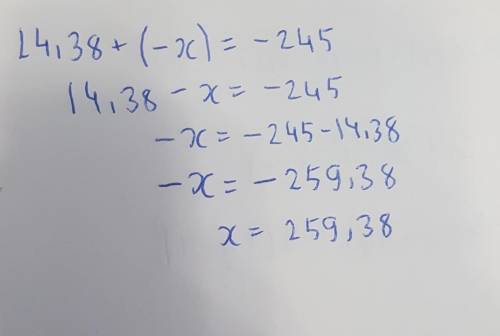 14,38 + (-x) = -245
14,38 - x = -245
-x = -245 - 14,38
-x = -259,38
x = 259,38